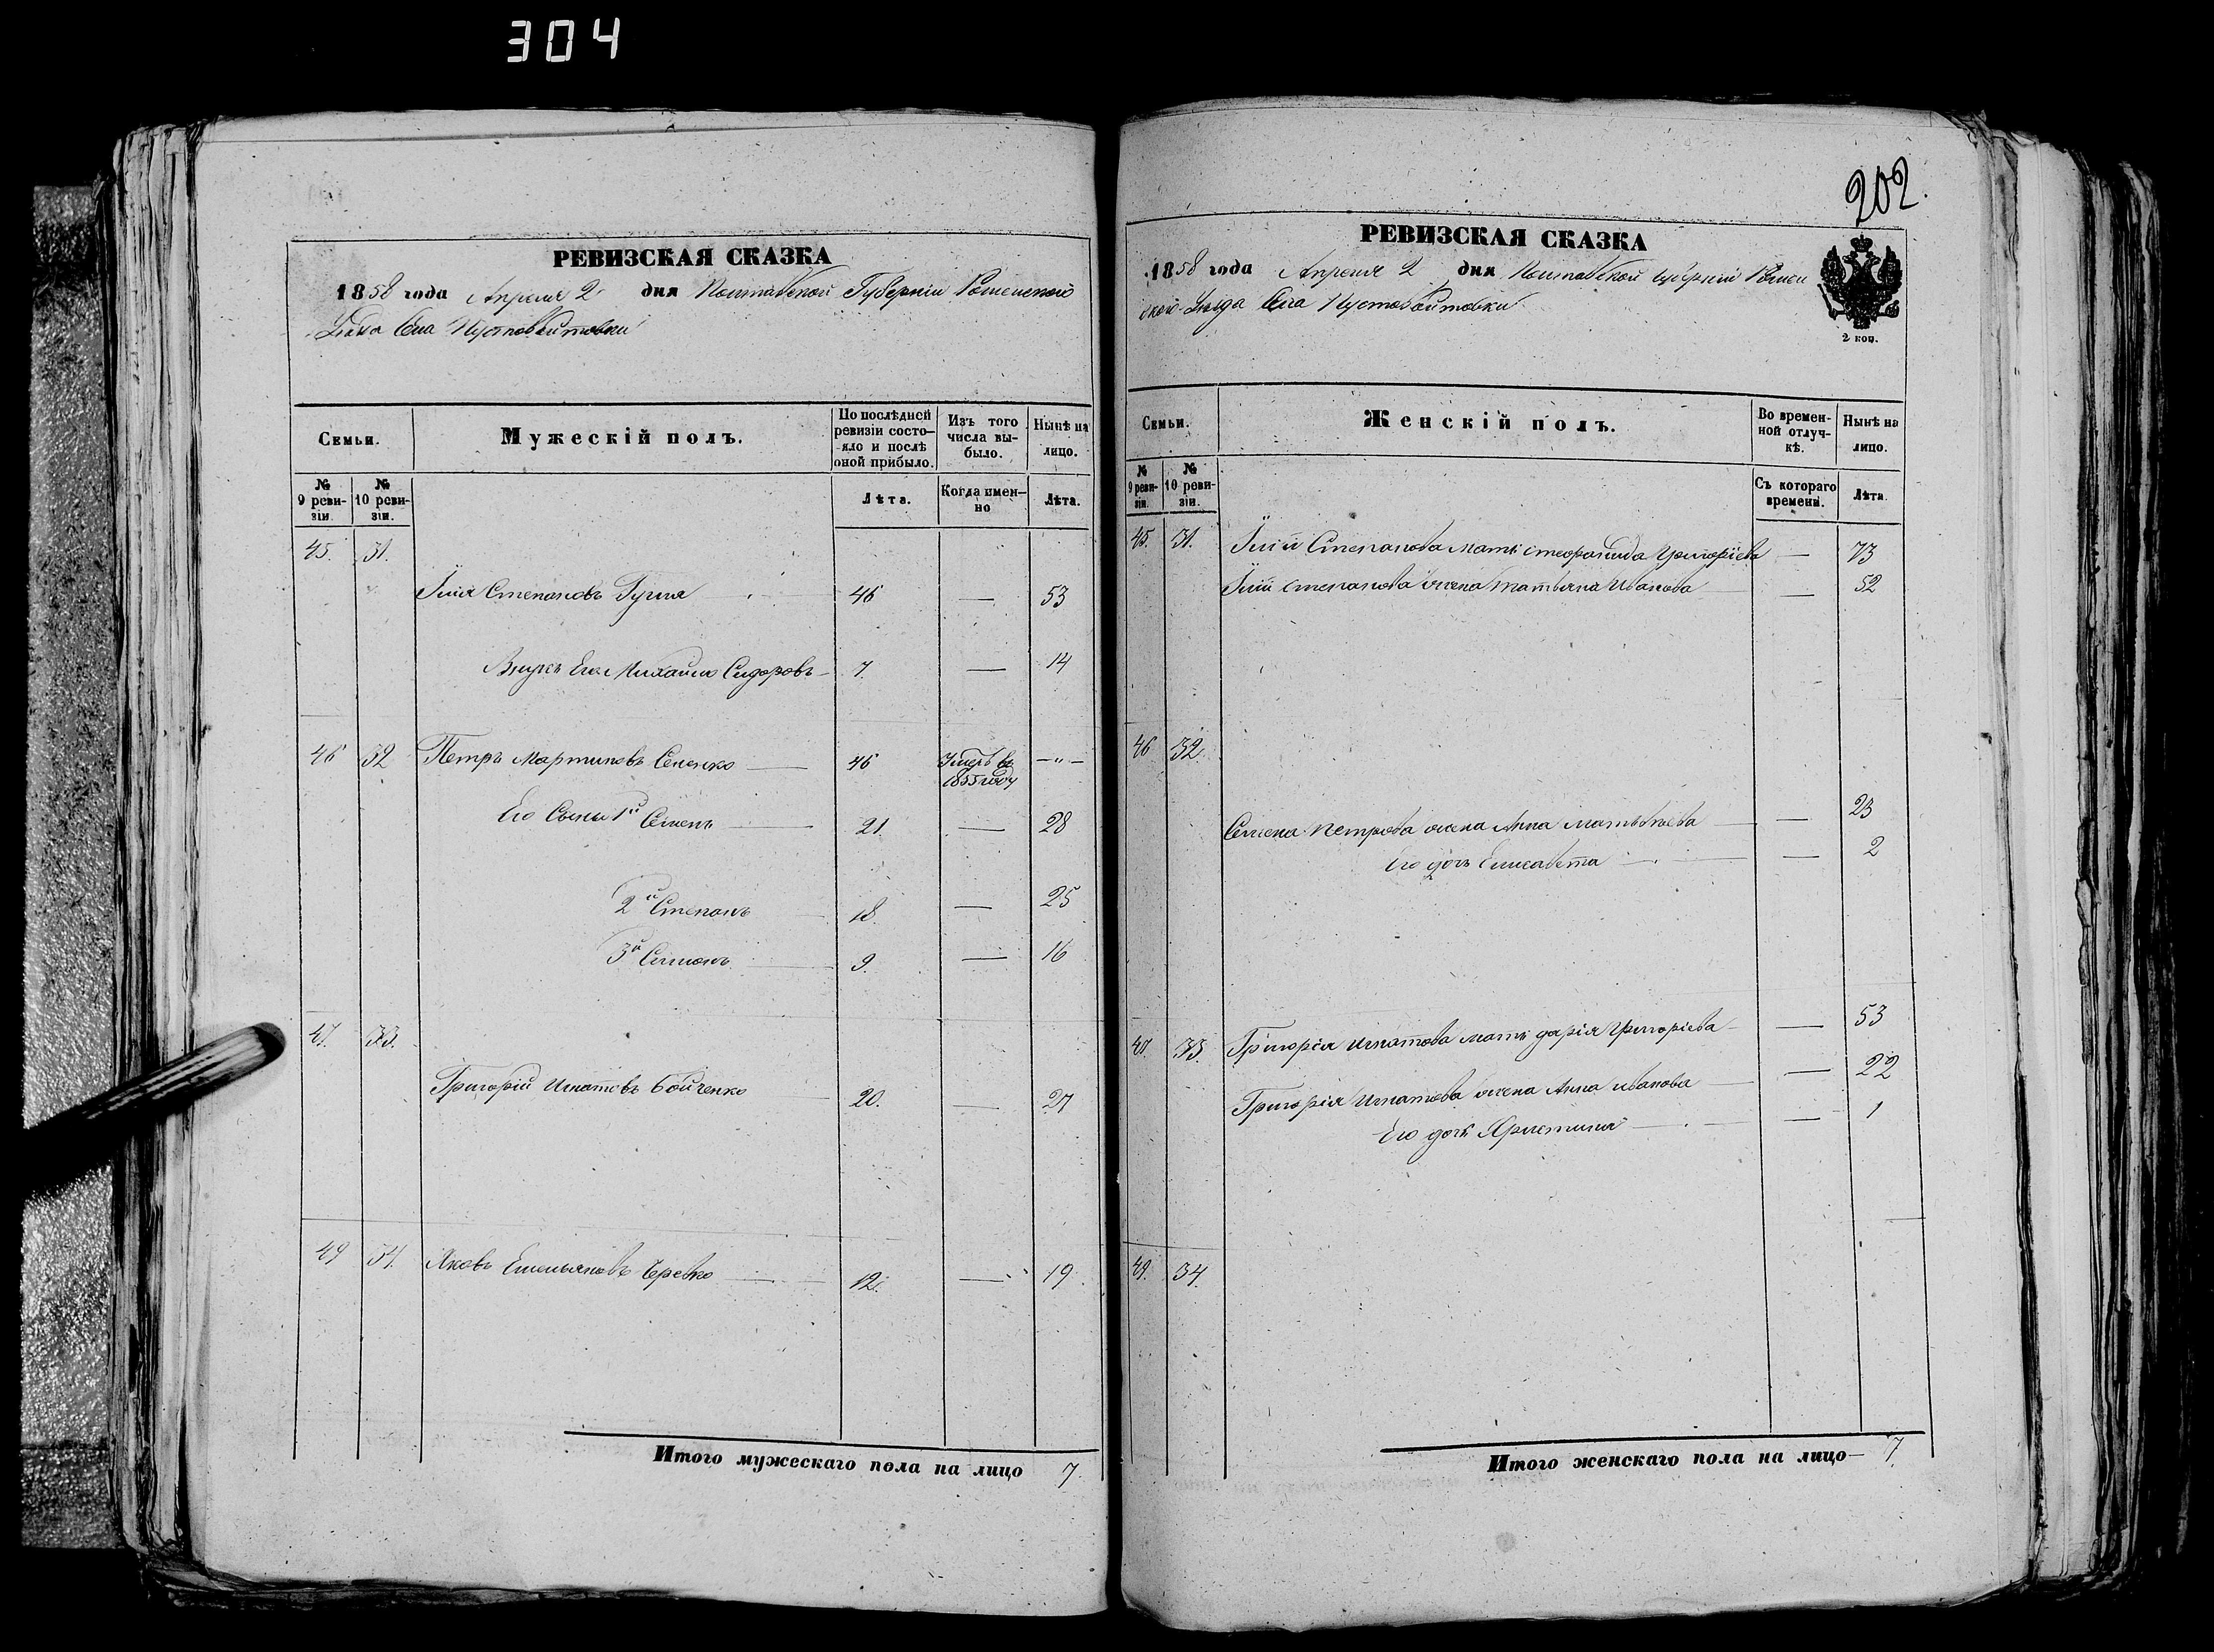 304
202.
РЕВИЗСКАЯ СКАЗКА
1858 года Апреля 2 дня Полтавской Губернiи Роменского
Уезда Села Пустовойтовки
Семьи.
Мужескiй полъ.
По послѣдней ревизiи состояло и послѣ оной прибыло.
Изъ того числа выбыло.
Нынѣ на лицо.
№ 9 ревизiи.
№ 10 ревизiи.
Лѣта.
Когда именно
Лѣта.
45. 31.
Илiя Степановъ Гуша 46 — 53
Внукъ Его Михайло Сидоровъ 7. — 14
46 32 Петръ Мартиновъ Сененко — 46 Умеръ въ 1855 году — " —
Его Сыны 1й Семенъ 21. — 28
2й Степанъ 18. — 25
3й Симонъ 9. — 16
47. 33.
Григорiй Игнатовъ Бойченко 20. — 27
49 34. Яковъ Емельяновъ Черевко 12. — 19
Итого мужескаго пола на лицо 7.
РЕВИЗСКАЯ СКАЗКА
1858 года Апреля 2 дня Полтавской Губернiи Ромен
ского Уезда Села Пустовойтовки
2 коп.
Семьи.
Женскiй полъ.
Во временной отлучкѣ.
Нынѣ на лицо.
№ 9 ревизiи.
№ 10 ревизiи.
Съ котораго времени.
Лѣта.
45. 31. Илiи Степанова мать Григорiева — 73
Илiи Степанова жена Татьяна Иванова — 52
46 32.
Семена Петрова жена Анна Матвѣева — 23
Его дочь Елисавета — 2
33. Григорiя Игнатова мать дарiя Григорiева — 53
Григорiя Игнатова жена Анна иванова — 22
Его дочь Христина — 1
49. 34.
Итого женскаго пола на лицо — 7.